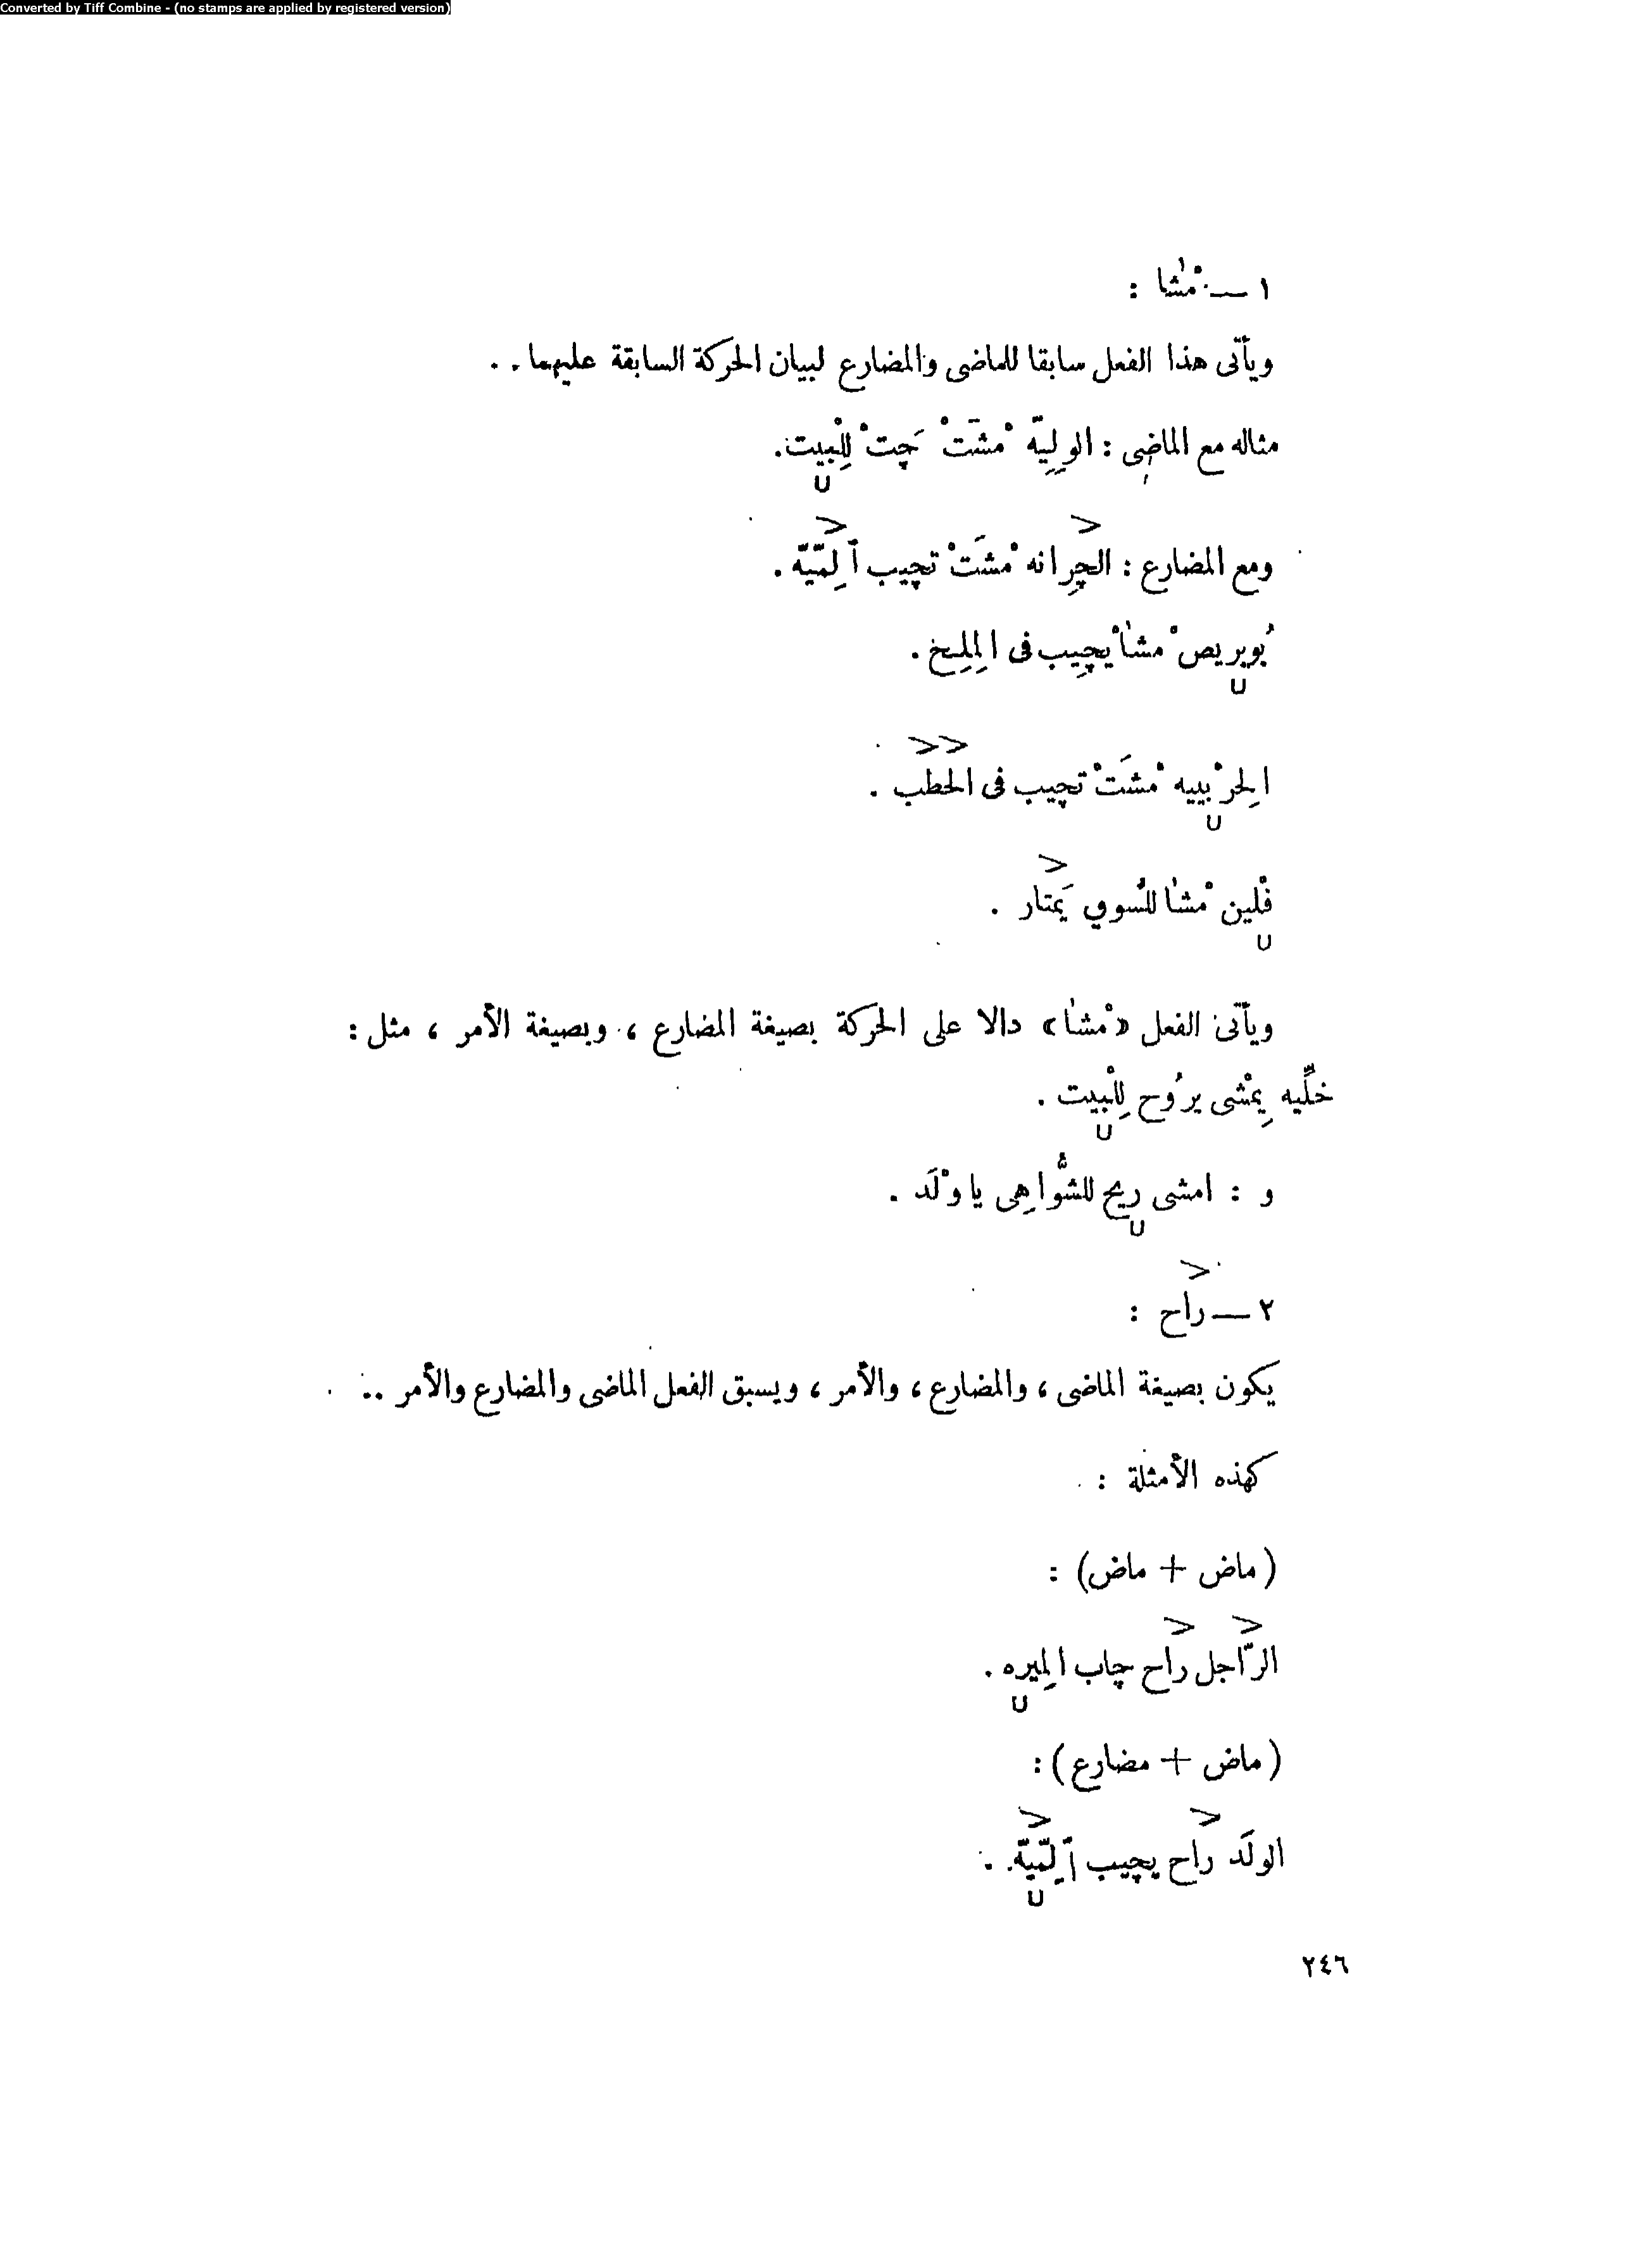 Converted by Tiff Combine - (no stamps are applied by registered version)
١ — مْشَا :
ويأتى هذا الفعل سابقا للماضى والمضارع لبيان الحركة السابقة عليهما . .
مثاله مع الماضى : الوِلِيَّه مْشَتْ چَتْ لِلْبيت .
ومع المضارع : الچِرانه مْشَتْ تچيب ٱلِمَّيَّه .
بُوبريص مْشَا يْچِيب فى المِلِخ .
الِحرْبييه مْشَتْ تچيب فى الحَطَب .
فْلين مْشَا للسُّوق يَمتار .
ويأتى الفعل «مْشَا» دالا على الحركة بصيغة المضارع ، وبصيغة الأمر ، مثل :
خلِّيه يِمْشى يرُوح لِلْبيت .
و : امشى رِيح للشُّوَاهِى يا وْلَد .
٢ — راح :
يكون بصيغة الماضى ، والمضارع ، والأمر ، ويسبق الفعل الماضى والمضارع والأمر ..
كهذه الأمثلة :
(ماض + ماض) :
الرّاجل راح چاب المِيره .
(ماض + مضارع) :
الولَد راح يچيب ٱلِمَّيَّه .
٢٤٦